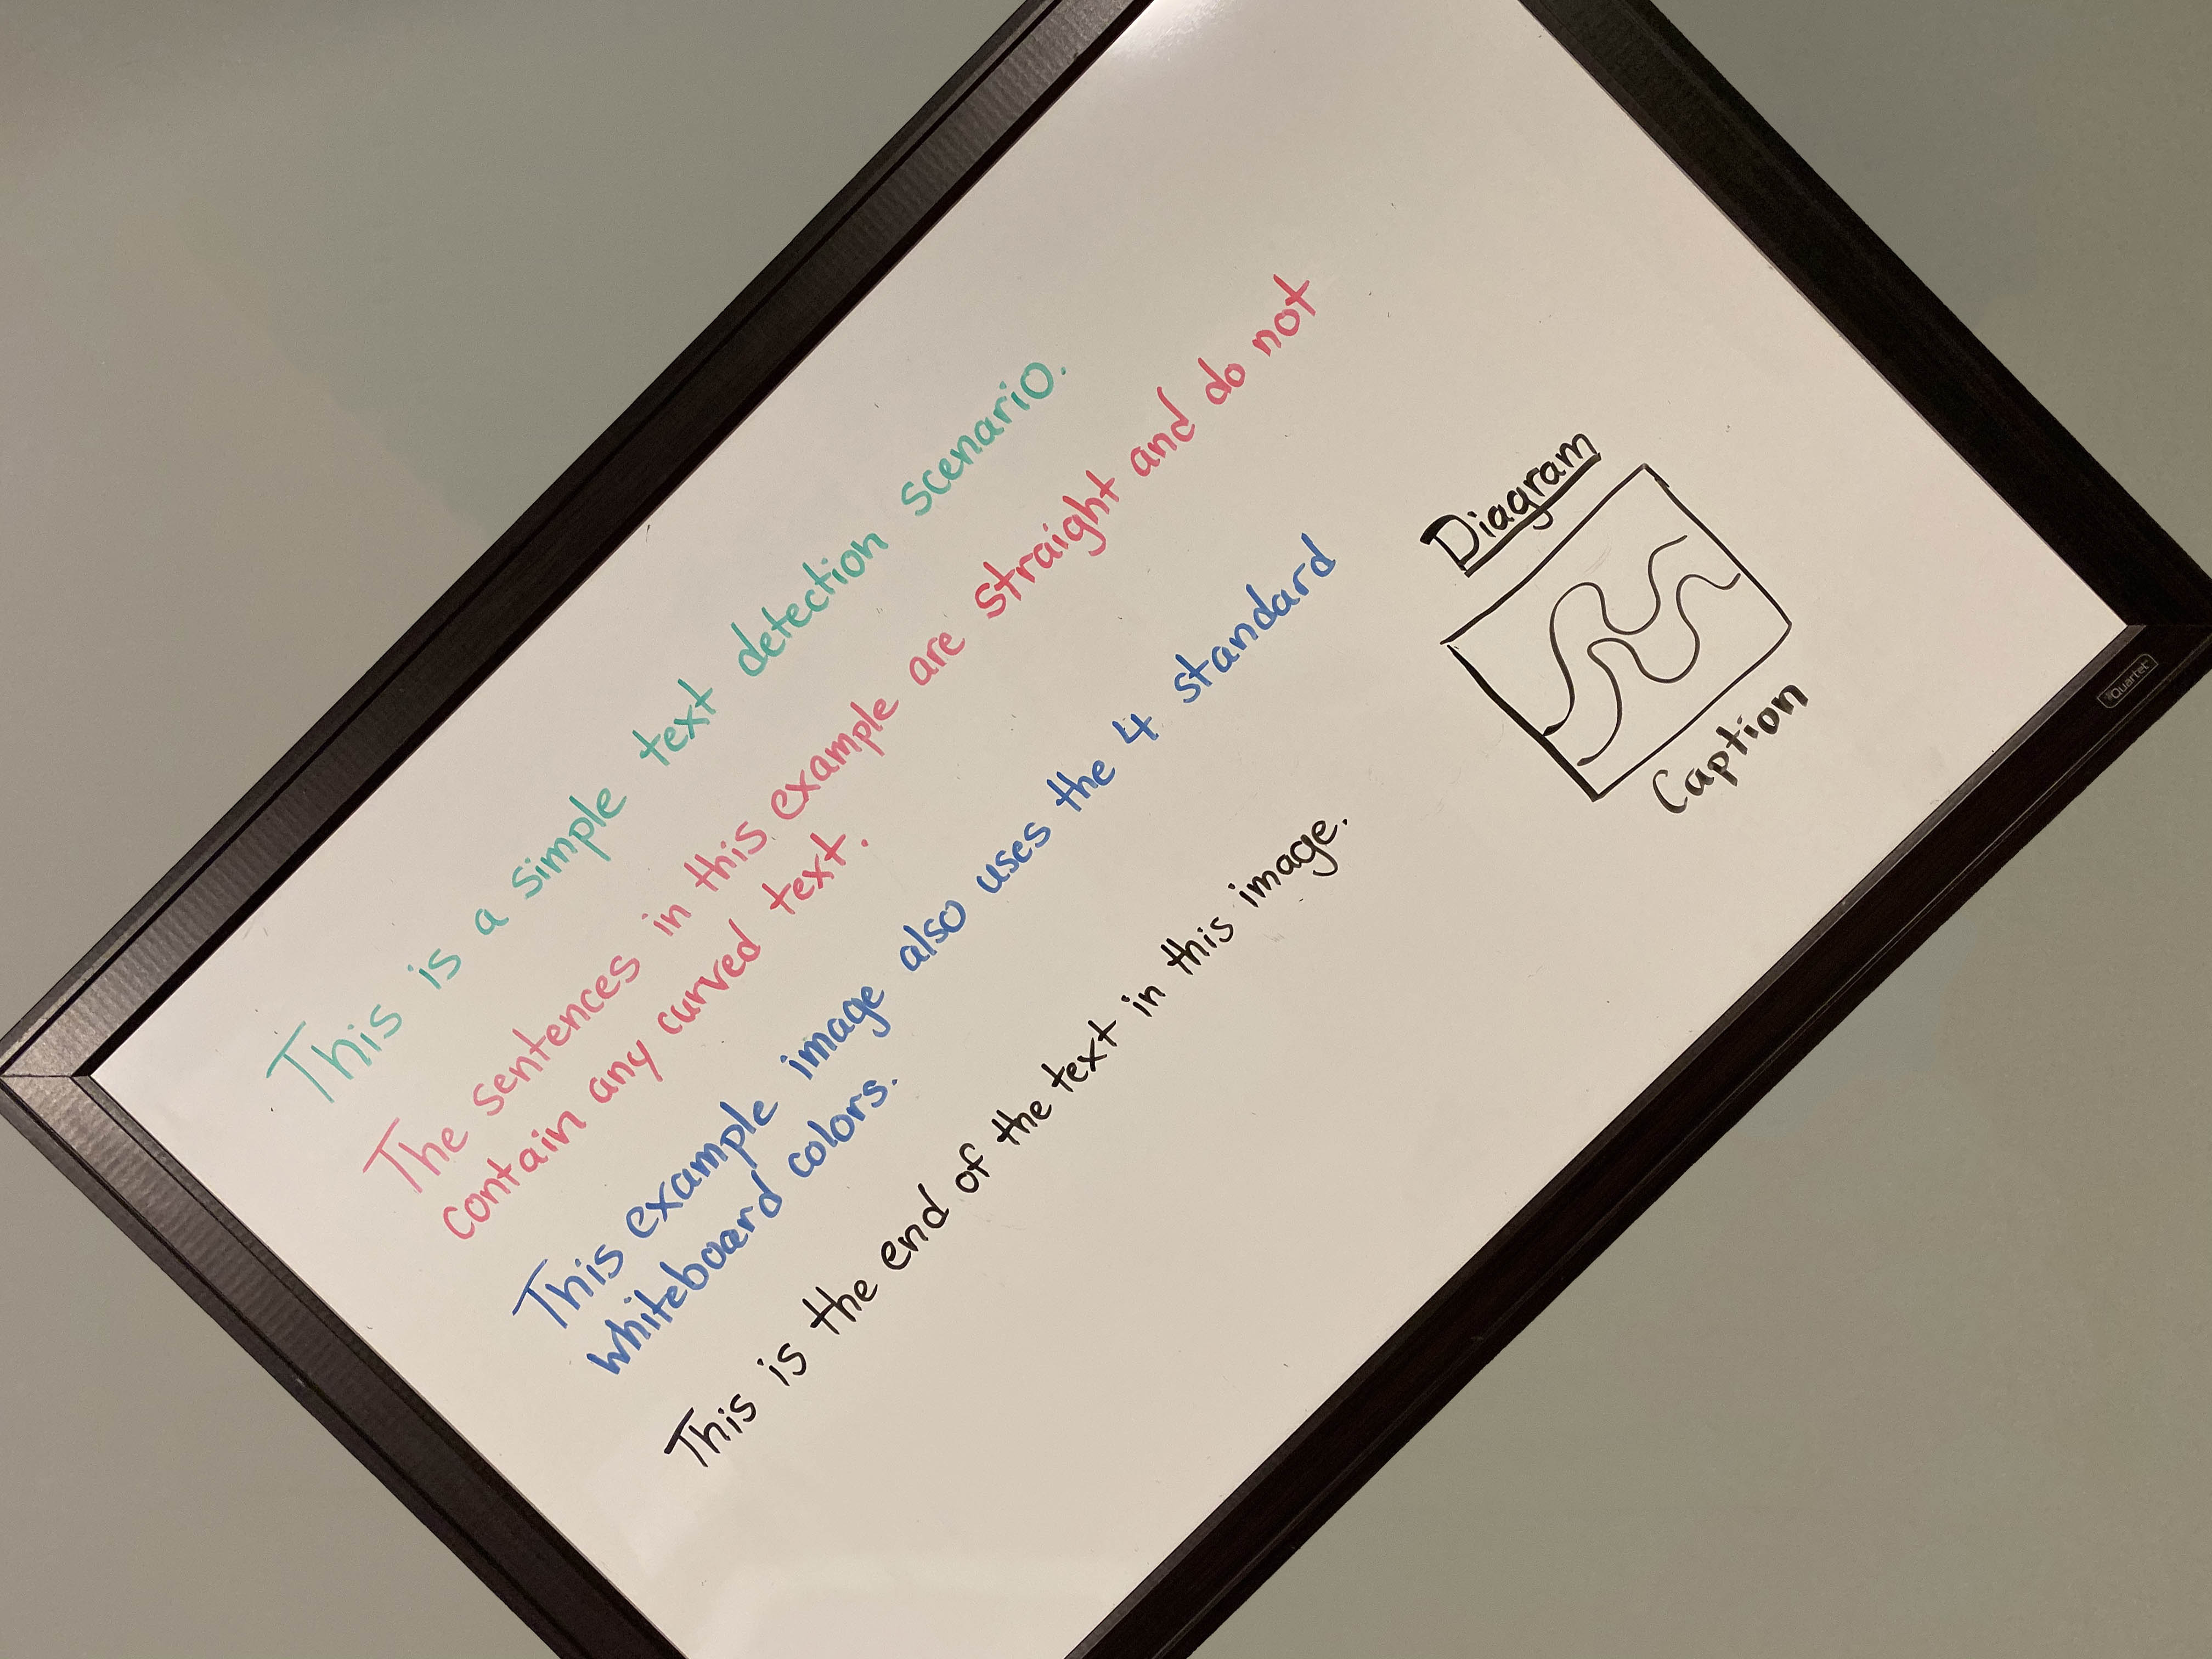 This is a simple text detection scenario.
The sentences in this example are straight and do not
contain any curved text.
This example image also uses the 4 standard
whiteboard colors.
This is the end of the text in this image.
Diagram
Caption
Quartet